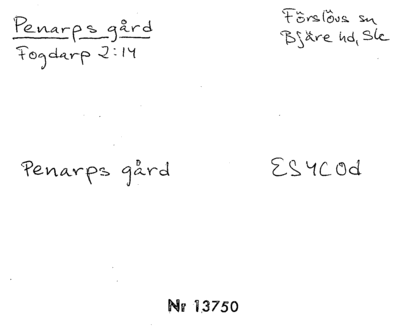 Penarps gård
Fogdarp 2:14
Förslövs sn
Bjäre hd, Sk
Penarps gård
ES4COd
Nr 13750